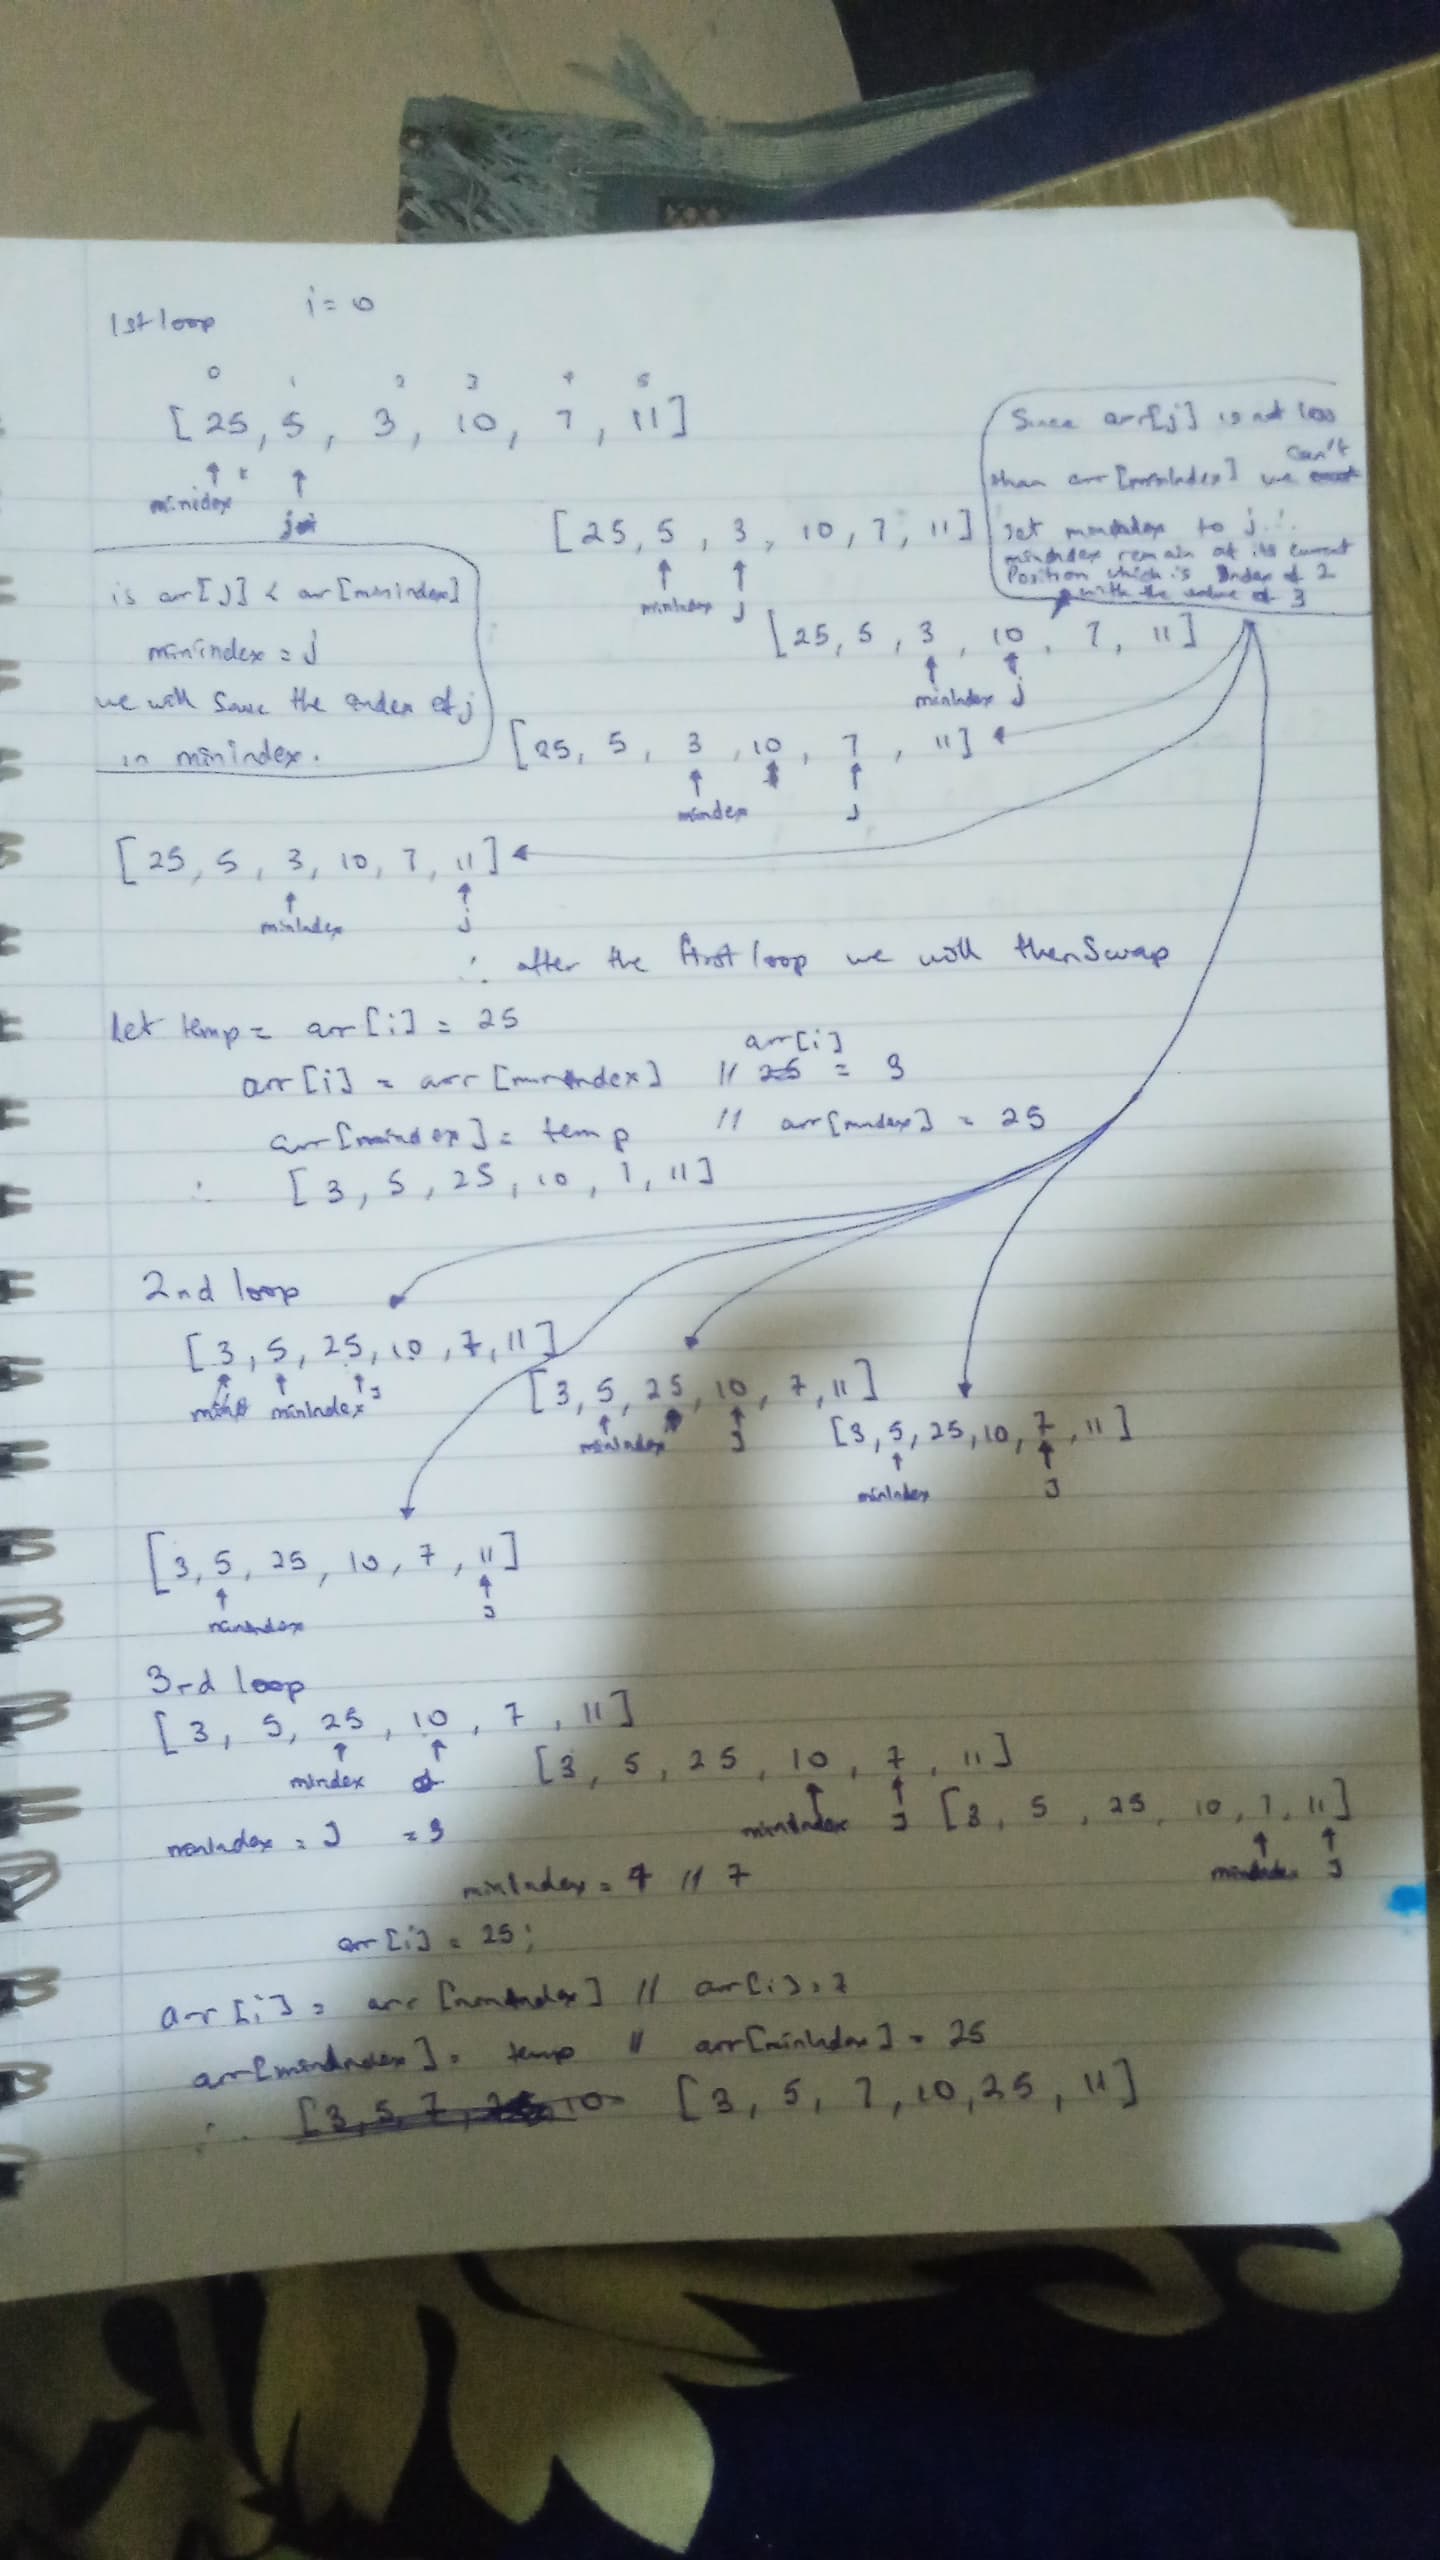 1st loop i = 0
0 1 2 3 4 5
[ 25, 5, 3, 10, 7, 11]
minidex j
is arr[j] < arr[minindex]
minindex = j
we will save the index of j
in minindex.
[25, 5, 3, 10, 7, 11]
minIndex j
Since arr[j] is not less
than arr[minIndex] we can't
set minIndex to j ∴
minIndex remain at its current
Position which is Index of 2
with the value of 3
[25, 5, 3, 10, 7, 11]
minIndex j
[25, 5, 3, 10, 7, 11]
mindex J
[25, 5, 3, 10, 7, 11]
minIndex j
∴ after the first loop we will then Swap
let temp = arr[i] = 25
arr[i] = arr[minIndex] // arr[i] = 3
arr[mindex] = temp // arr[mindex] = 25
∴ [3, 5, 25, 10, 7, 11]
2nd loop
[3, 5, 25, 10, 7, 11]
minIndex J
[3, 5, 25, 10, 7, 11]
minIndex J
[3, 5, 25, 10, 7, 11]
minIndex J
[3, 5, 25, 10, 7, 11]
minIndex J
3rd loop
[3, 5, 25, 10, 7, 11]
mindex
minIndex = J = 3
[3, 5, 25, 10, 7, 11]
minIndex J
[3, 5, 25, 10, 7, 11]
minIndex J
minIndex = 4 // 7
arr[i] = 25;
arr[i] = arr[minIndex] // arr[i] = 7
arr[minIndex] = temp // arr[minIndex] = 25
∴ [3, 5, 7, 10, 25, 11]